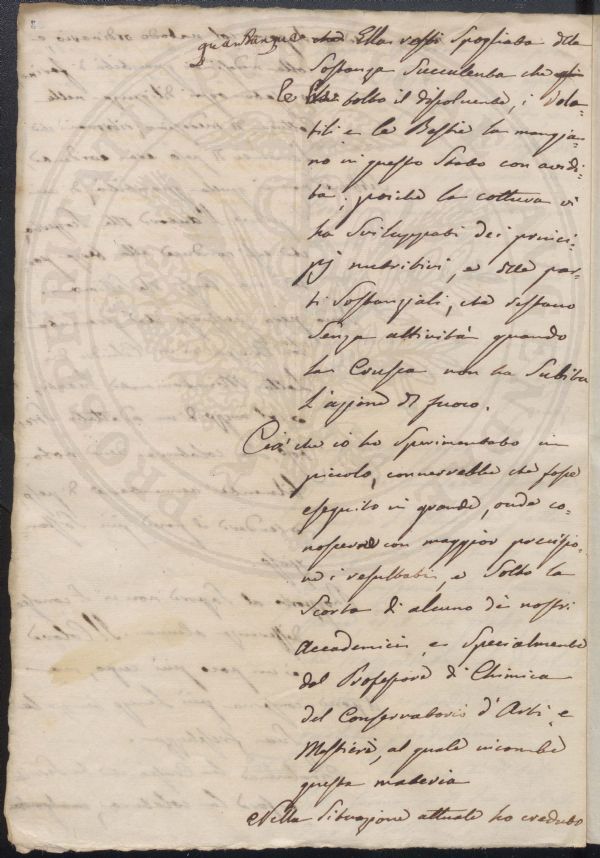 quantunque Ella resti Spogliata della
Sostanza Succulenta che
le ha tolto il dissolvente, i Vola-
tili e le Bestie la mangia-
no in questo Stato con avidi-
tà, poiché la cottura vi
ha Sviluppati dei princi-
pj nutritivi, e delle par-
ti Sostanziali, che restano
Senza attività quando
la Crusca non ha Subita
l'azione del fuoco.
Ciò che io ho Sperimentato in
piccolo, converrebbe che fosse
eseguito in grande, onde co-
noscere con maggior precisio-
ne i resultati, e Sotto la
Scorta di alcuno de nostri
Accademici, e Specialmente
del Professore di Chimica
del Conservatorio d'Arti, e
Mestieri, al quale incombe
questa materia
Nella Situazione attuale ho creduto